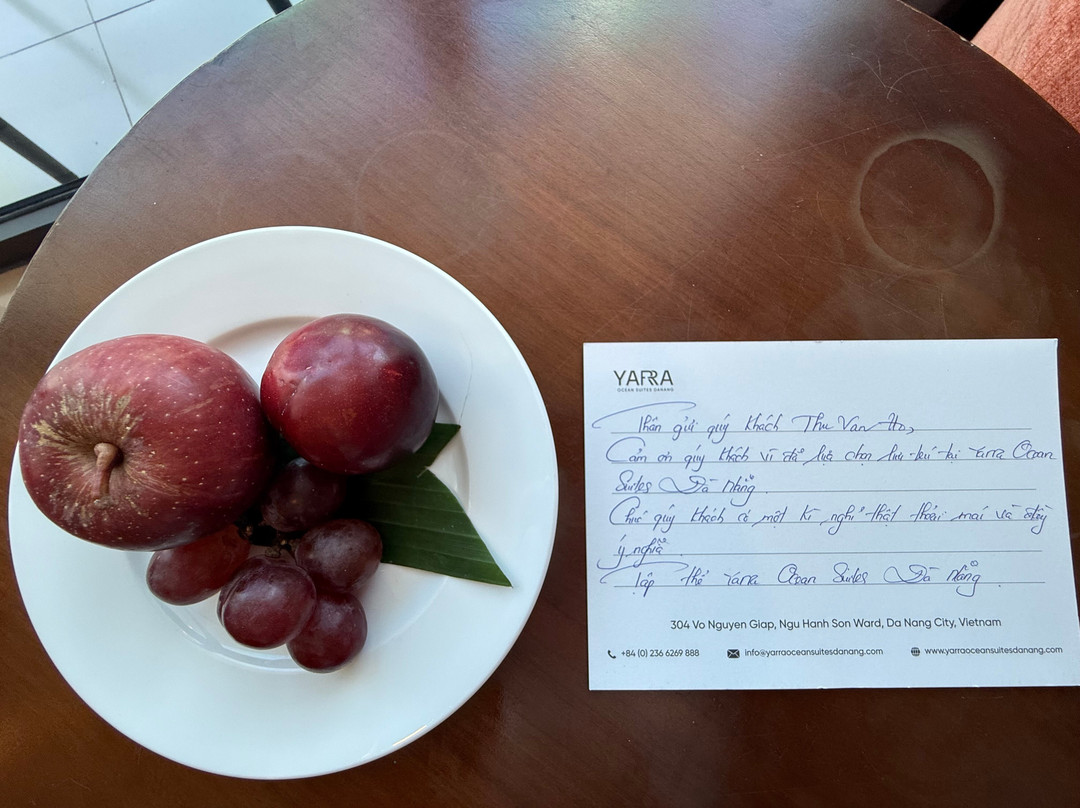 YARRA
OCEAN SUITES DANANG
Thân gửi quý khách Thu Van Ho,
Cảm ơn quý khách vì đã lựa chọn lưu trú tại Yarra Ocean
Suites Đà Nẵng.
Chúc quý khách có một kì nghỉ thật thoải mái và đầy
ý nghĩa.
Tập thể Yarra Ocean Suites Đà Nẵng.
304 Vo Nguyen Giap, Ngu Hanh Son Ward, Da Nang City, Vietnam
+84 (0) 236 6269 888 info@yarraoceansuitesdanang.com www.yarraoceansuitesdanang.com